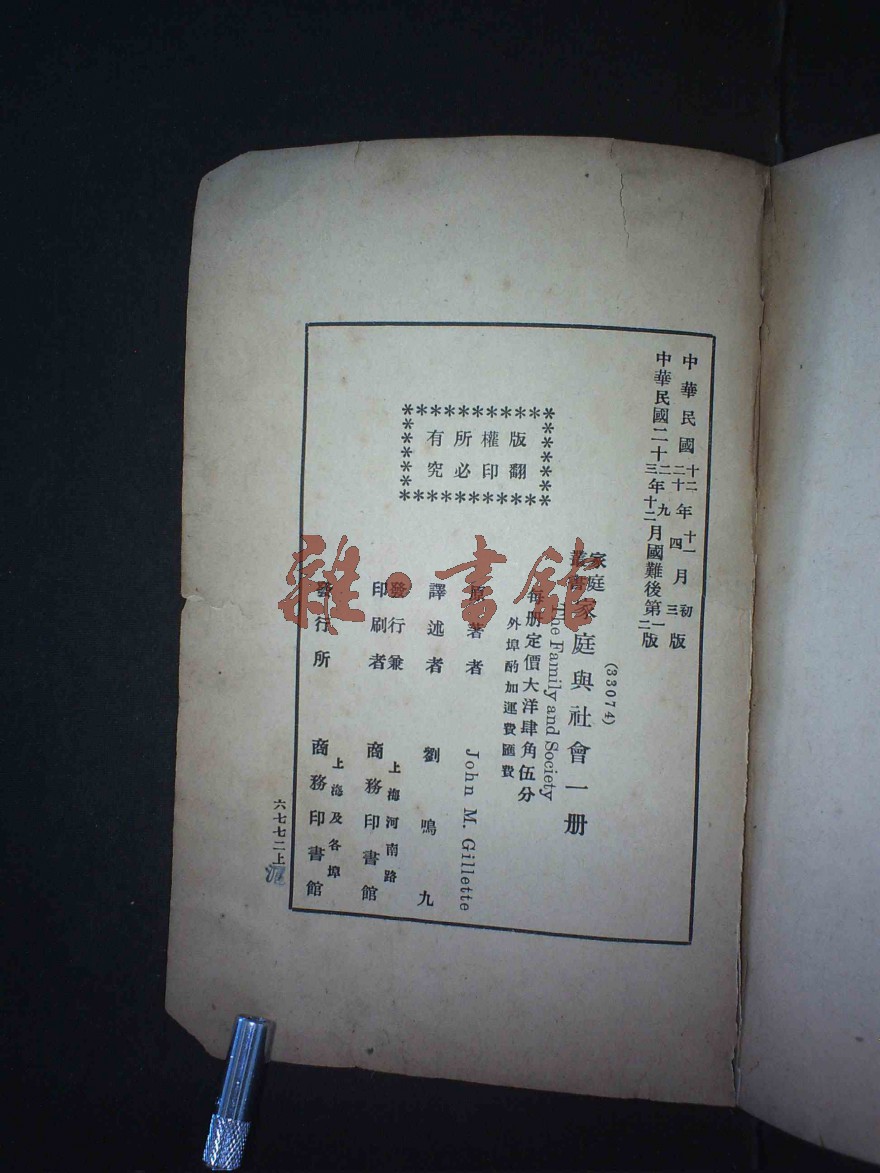 中華民國十二年十一月初版
二十 四 三
中華民國二十二年九月國難後第一版
三 十二 二
(33074)
家庭叢書
家庭與社會一册
The Family and Society
每册定價大洋肆角伍分
外埠酌加運費匯費
版權所有
翻印必究
原著者 John M. Gillette
譯述者 劉鳴九
發行兼印刷者 上海河南路商務印書館
發行所 上海及各埠商務印書館
六七七二上
雜·書館